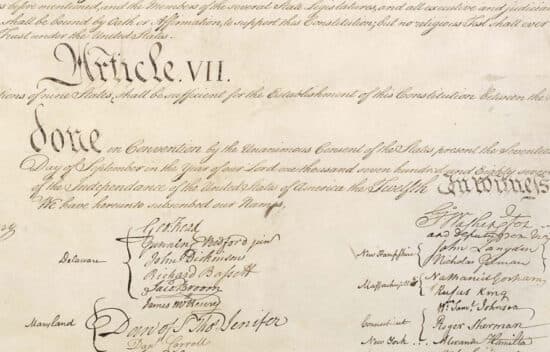 before mentioned, and the Members of the several State Legislatures, and all executive and judicial
shall be bound by Oath or Affirmation, to support this Constitution; but no religious Test shall ever
Trust under the United States.
Article. VII.
of nine States, shall be sufficient for the Establishment of this Constitution between the
done in Convention by the Unanimous Consent of the States present the Seventeenth
Day of September in the Year of our Lord one thousand seven hundred and Eighty seven
of the Independance of the United States of America the Twelfth In Witness
We have hereunto subscribed our Names,
Delaware
Geo: Read
Gunning Bedford jun
John Dickinson
Richard Bassett
Jaco: Broom
Maryland
James McHenry
Dan of St Thos Jenifer
Danl Carroll
and deputy from
New Hampshire
John Langdon
Nicholas Gilman
Massachusetts
Nathaniel Gorham
Rufus King
Connecticut
Wm. Saml. Johnson
Roger Sherman
New York
Alexander Hamilton